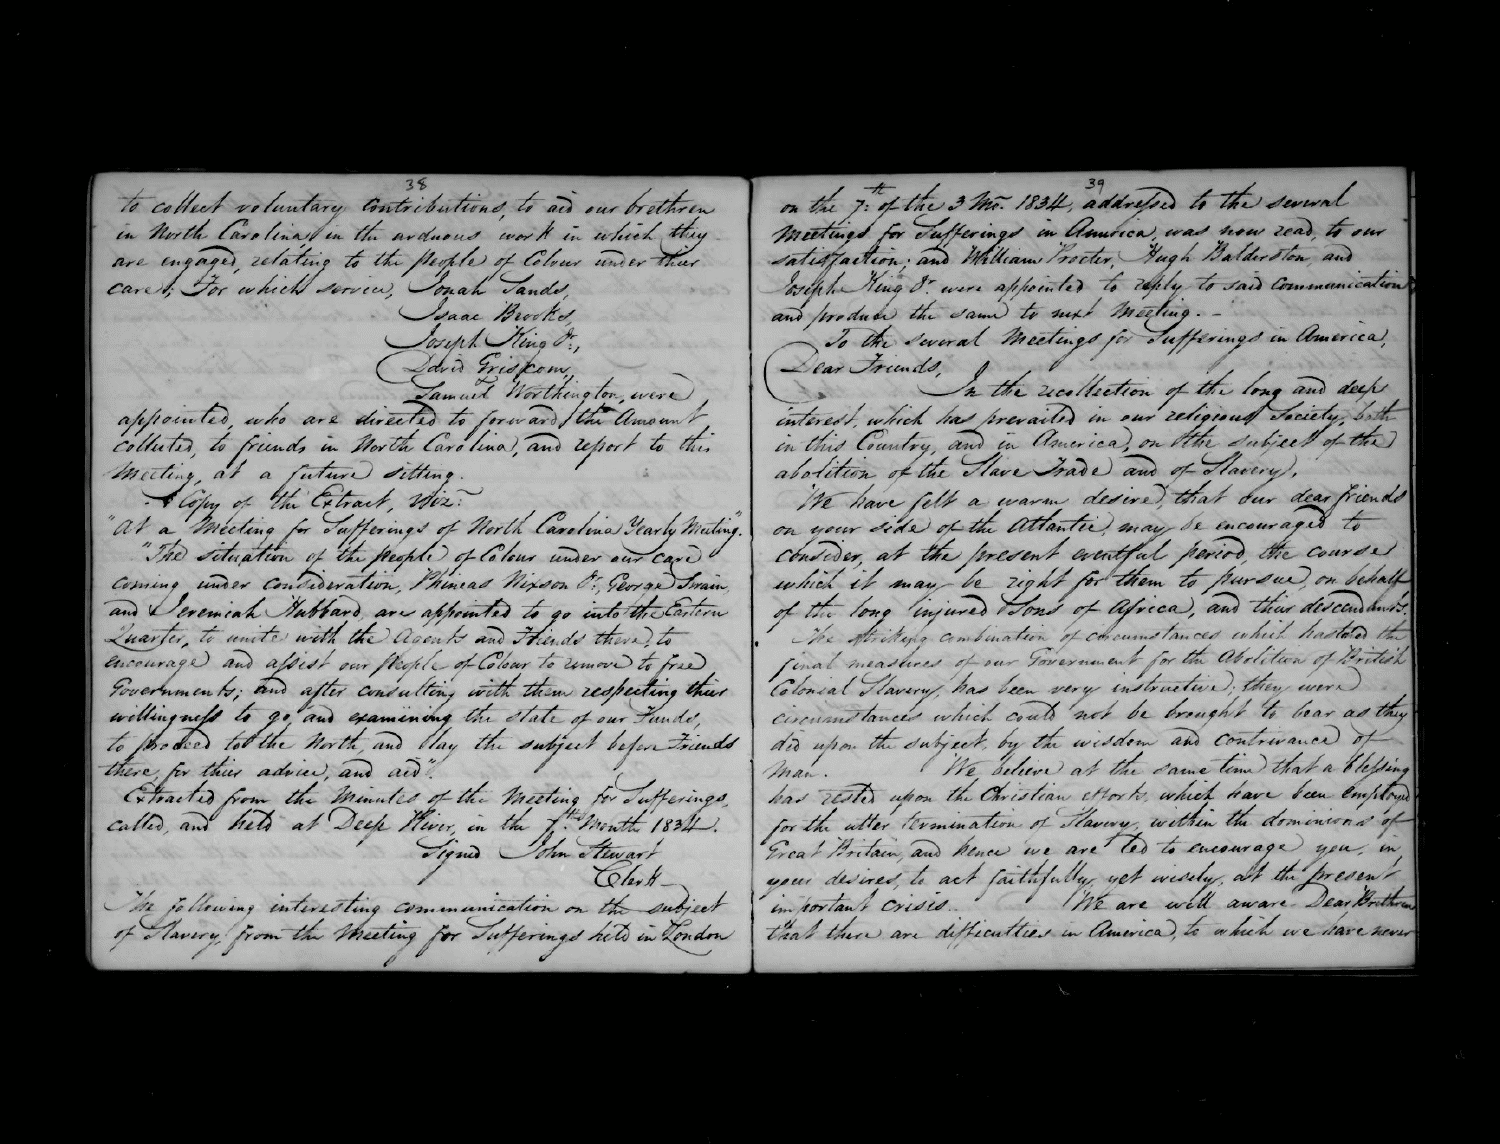 38
to collect voluntary contributions, to aid our brethren
in North Carolina, in the arduous work in which they
are engaged, relating to the people of Colour under their
care; For which service, Jonah Sands,
Isaac Brooks,
Joseph King Jr.,
David Griscom,
Samuel Worthington, were
appointed, who are directed to forward the Amount
collected, to friends in North Carolina, and report to this
Meeting, at a future sitting.
A Copy of the Extract, Viz:
"At a Meeting for Sufferings of North Carolina Yearly Meeting".
"The situation of the people of Colour under our care
coming under consideration, Phineas Nixson Jr., George Swain,
and Jeremiah Hubbard, are appointed to go into the Eastern
Quarter, to unite with the Agents and Friends there, to
encourage and assist our people of Colour to remove to free
Governments; and after consulting with them respecting their
willingness to go, and examining the state of our Funds,
to proceed to the North, and lay the subject before Friends
there, for their advice, and aid".
Extracted from the Minutes of the Meeting for Sufferings,
called, and held at Deep River, in the 7th. Month 1834.
Signed John Stewart
Clerk
The following interesting communication on the subject
of Slavery, from the Meeting for Sufferings held in London
39
on the 7th. of the 3 Mo. 1834, addressed to the several
Meetings for Sufferings in America, was now read, to our
satisfaction; and William Procter, Hugh Balderston, and
Joseph King Jr were appointed to reply to said communication
and produce the same to next Meeting. -
To the several Meetings for Sufferings in America,
Dear Friends,
In the recollection of the long and deep
interest, which has prevailed in our religious Society, both
in this Country, and in America, on the subject of the
abolition of the Slave Trade and of Slavery,
We have felt a warm desire, that our dear friends
on your side of the Atlantic, may be encouraged to
consider, at the present eventful period, the course
which it may be right for them to pursue, on behalf
of the long injured Sons of Africa, and their descendants.
The striking combination of circumstances which hastened the
final measures of our Government for the Abolition of British
Colonial Slavery, has been very instructive; they were
circumstances which could not be brought to bear as they
did upon the subject, by the wisdom and contrivance of
Man. We believe at the same time that a blessing
has rested upon the Christian efforts, which have been employed
for the utter termination of Slavery, within the dominions of
Great Britain, and hence we are led to encourage you, in
your desires, to act faithfully, yet wisely, at the present
important crisis. We are well aware Dear Brethren
that there are difficulties in America, to which we have never